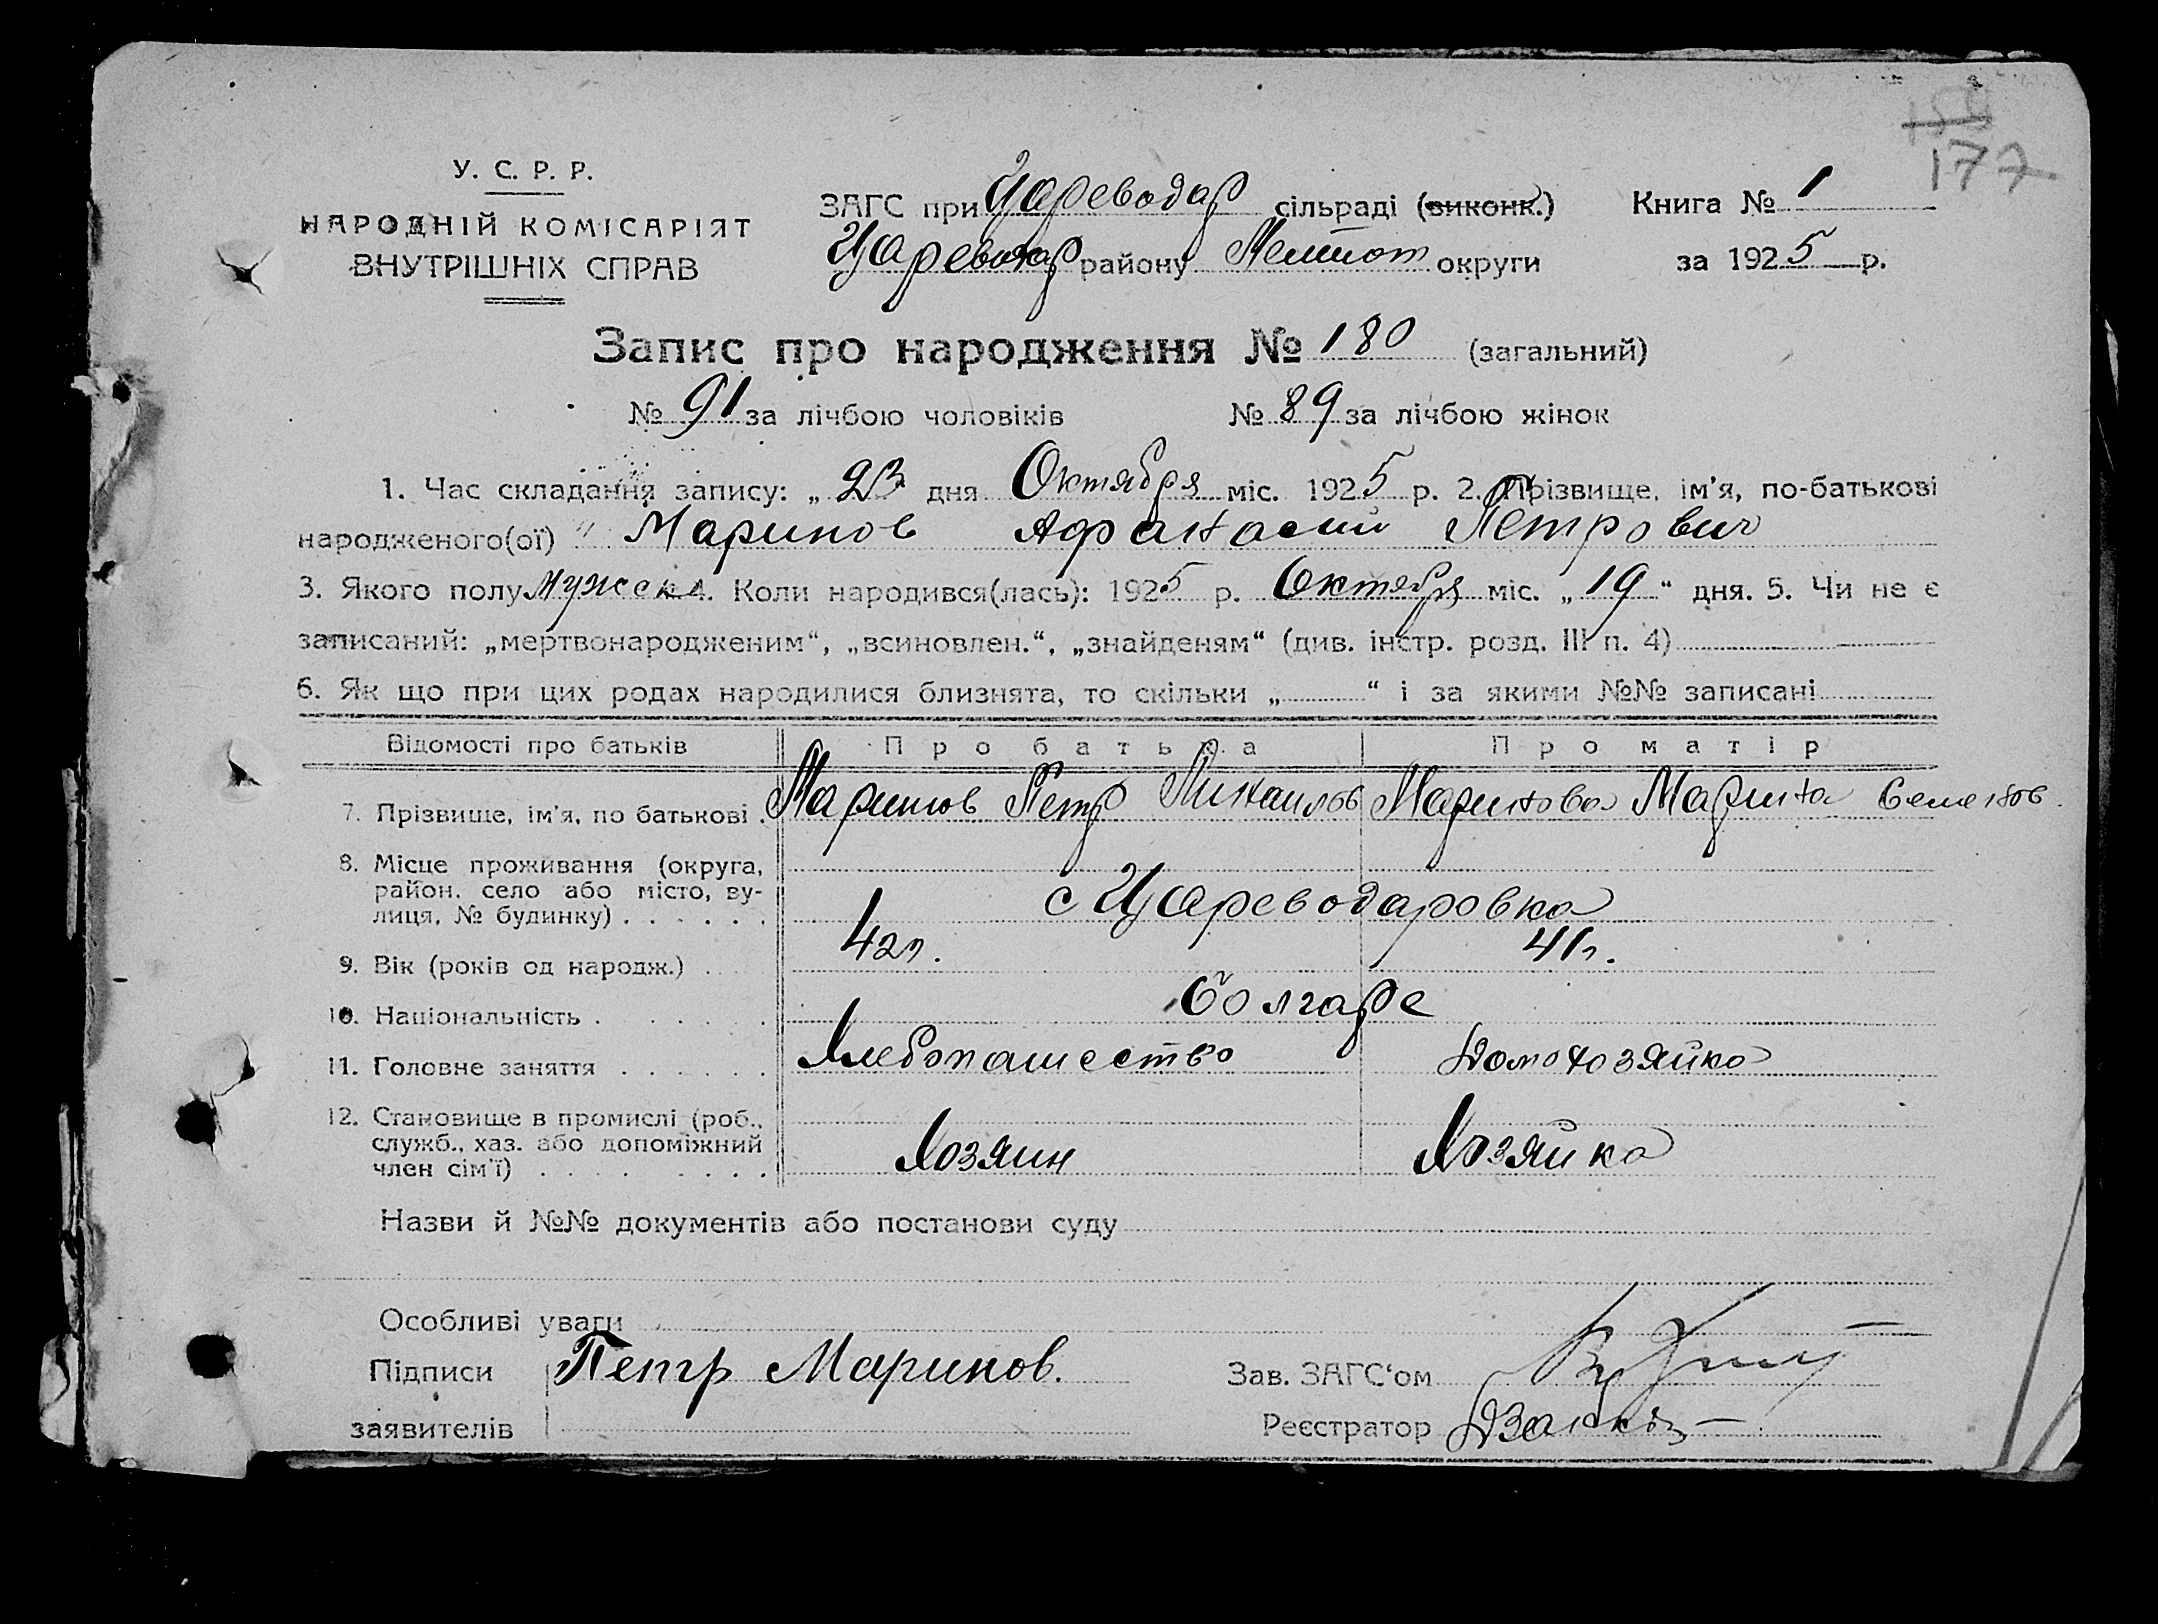 177
У. С. Р. Р.
НАРОДНІЙ КОМІСАРІЯТ
ВНУТРІШНІХ СПРАВ
ЗАГС при Цареводар сільраді (виконк.) Книга № 1
Цареводар району Мелітоп округи за 1925 р.
Запис про народження № 180 (загальний)
№ 91 за лічбою чоловіків № 89 за лічбою жінок
1. Час складання запису: „ 23 дня Октября міс. 1925 р. 2. Прізвище, ім'я, по-батькові
народженого(ої) Маринов Афанасий Петрович
3. Якого полу Мужск 4. Коли народився(лась): 1925 р. Октября міс. „ 19 “ дня. 5. Чи не є
записаний: „мертвонародженим“, „всиновлен.“, „знайденям“ (див. інстр. розд. III п. 4)
6. Як що при цих родах народилися близнята, то скільки „ “ і за якими №№ записані
Відомості про батьків Про батька Про матір
7. Прізвище, ім'я, по батькові . Маринов Петр Михаилов Маринова Марина Семенов.
8. Місце проживання (округа,
район, село або місто, ву-
лиця, № будинку) . . . . . . с Цареводаровка
9. Вік (років од народж.) . . . 42л. 41л.
10. Національність . . . . . . Болгаре
11. Головне заняття . . . . . . Хлебопашество Домохозяйка
12. Становище в промислі (роб.,
служб., хаз. або допоміжний
член сім'ї) . . . . . . . . Хозяин Хозяйка
Назви й №№ документів або постанови суду
Особливі уваги
Підписи Петр Маринов. Зав. ЗАГС‘ом
заявителів Реєстратор